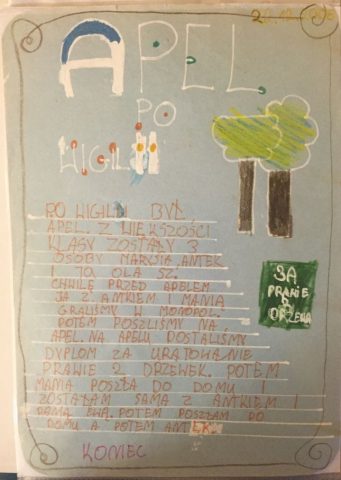 2 .12.
APEL
PO
WIGILII
PO WIGILII BYŁ
APEL. Z WIĘKSZOŚCI
KLASY ZOSTAŁY 3
OSOBY MARYSIA, ANTEK
I JA OLA SZ.
CHWILĘ PRZED APELEM
JA Z ANTKIEM I MANIĄ
GRALIŚMY W MONOPOL.
POTEM POSZLIŚMY NA
APEL. NA APELU DOSTALIŚMY
DYPLOM ZA URATOWANIE
PRAWIE 2 DRZEWEK. POTEM
MANIA POSZŁA DO DOMU I
ZOSTAŁAM SAMA Z ANTKIEM I
PANIĄ EWĄ. POTEM POSZŁAM DO
DOMU A POTEM ANTEK.
KONIEC
SĄ
PRAWIE
2
DRZEWA